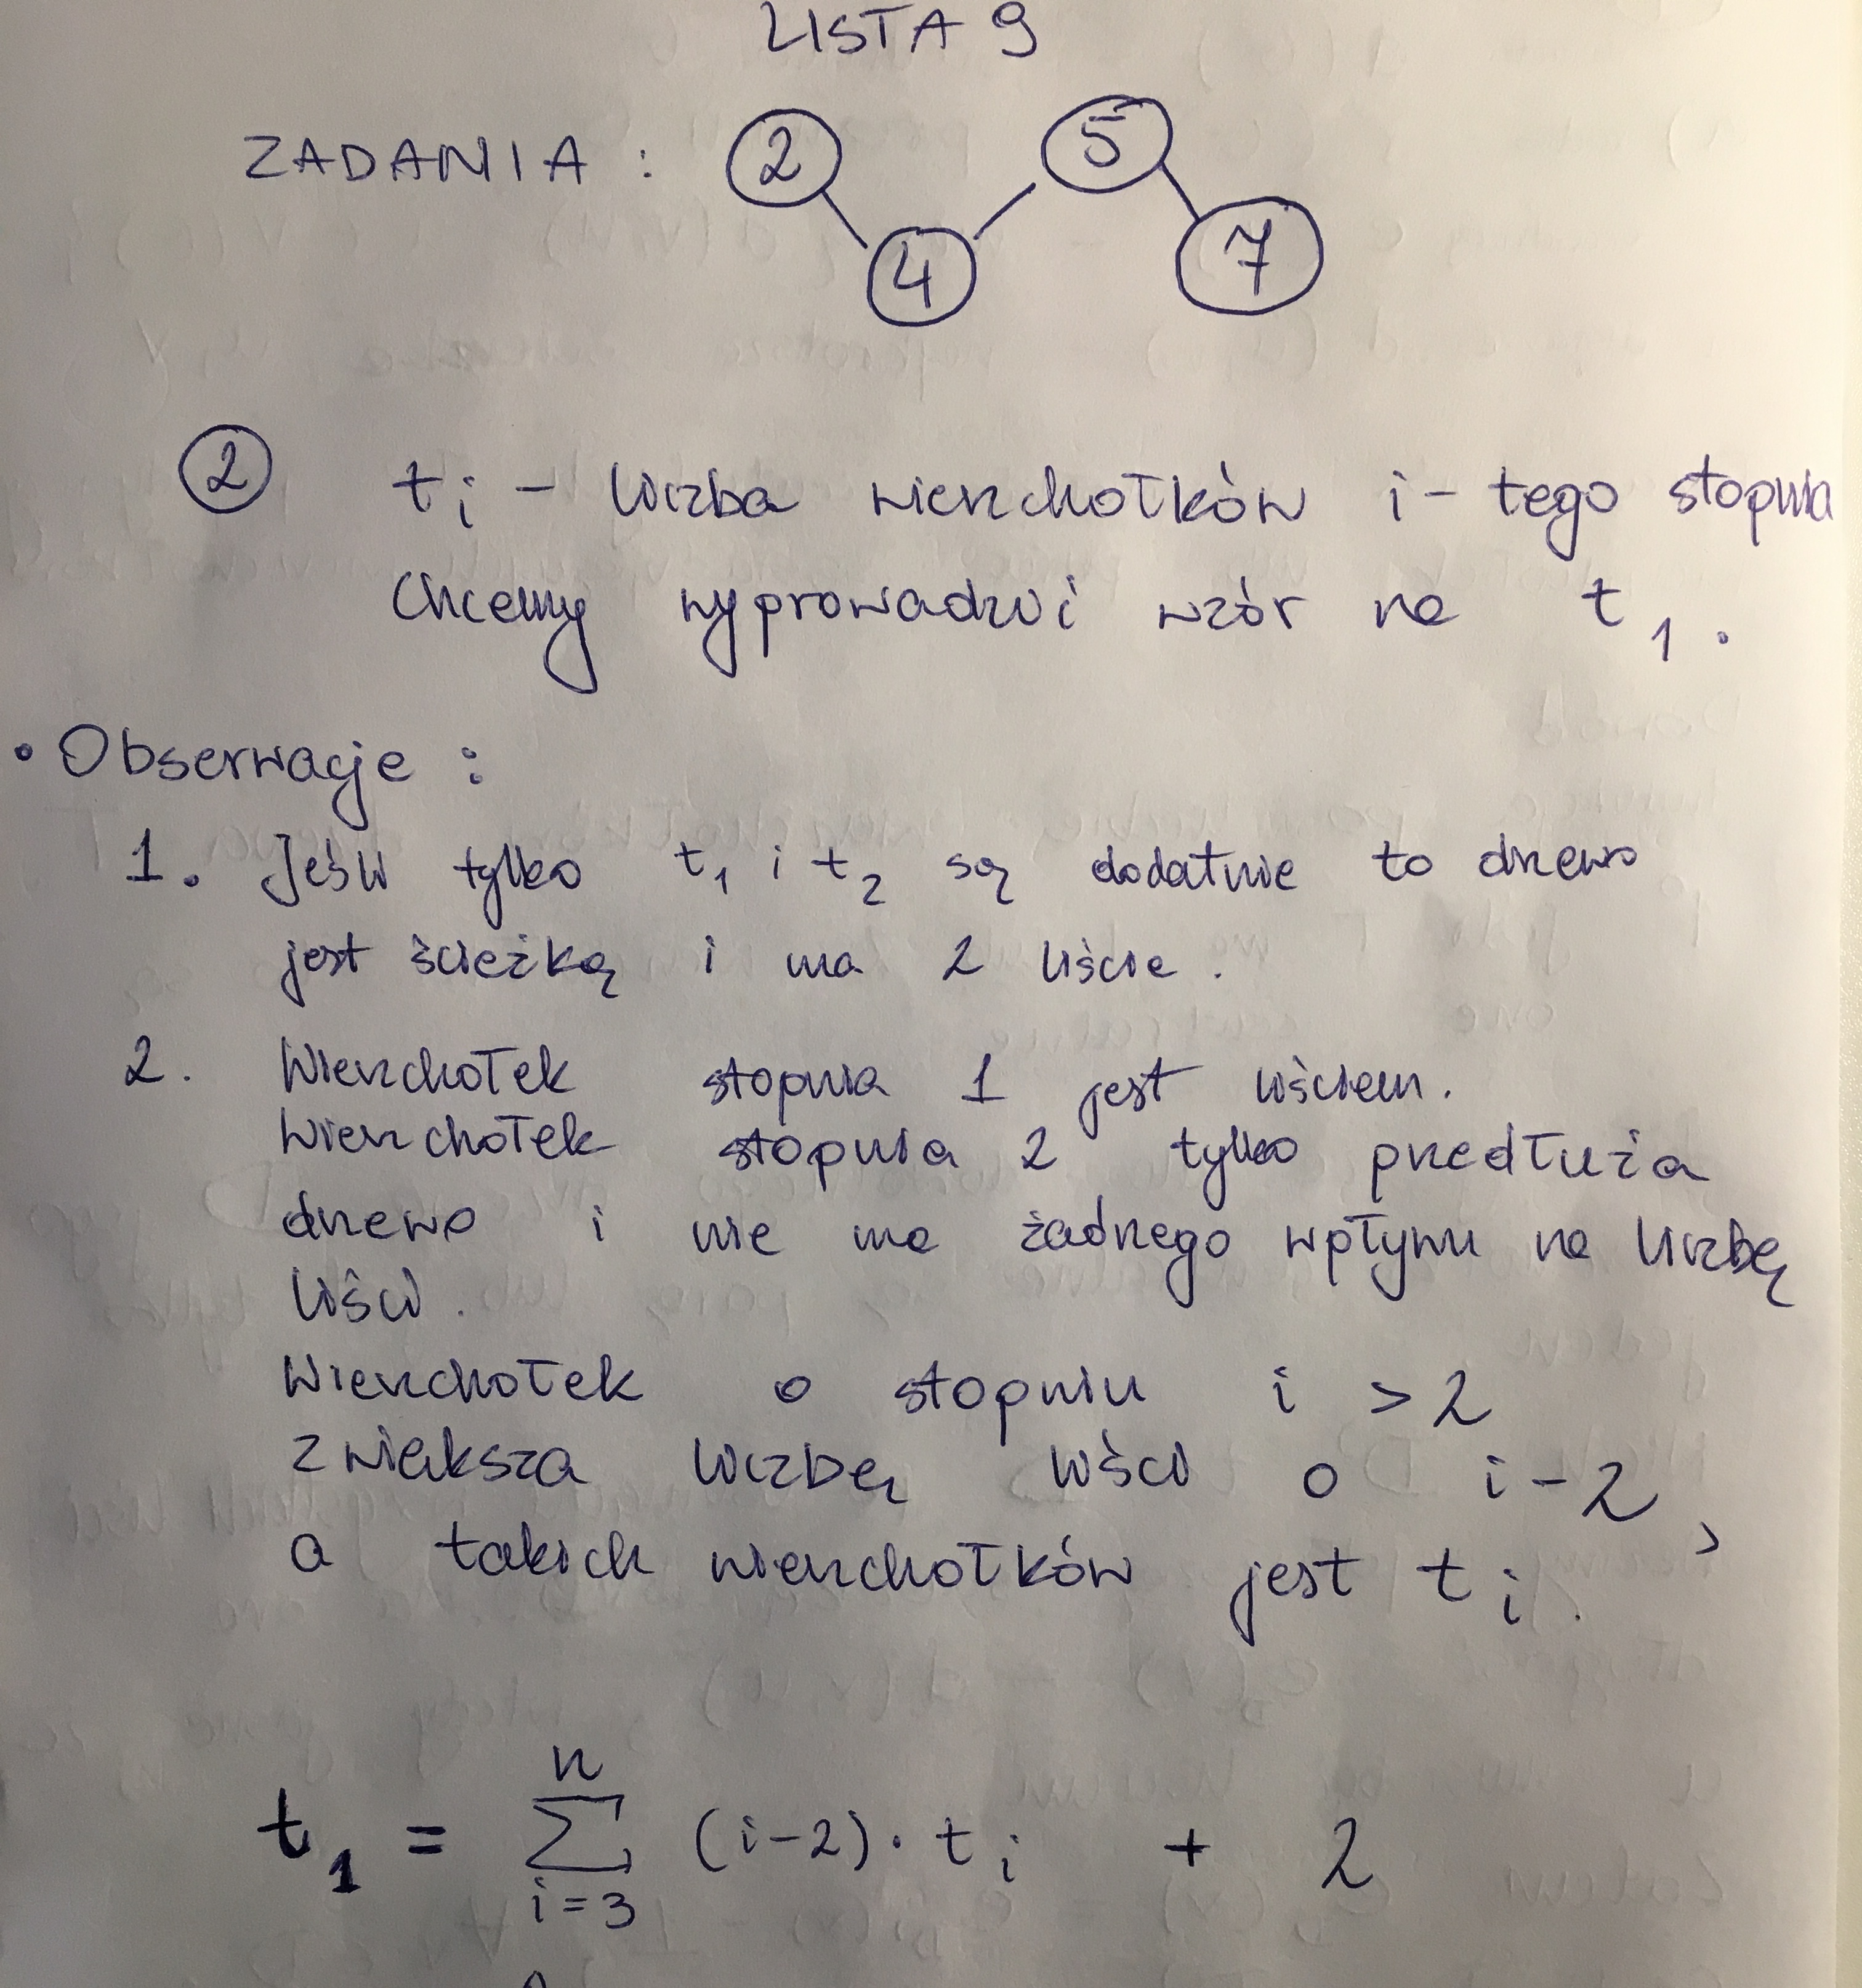 LISTA 9
ZADANIA : 2 5
4 7
2 t i - liczba wierzchołków i - tego stopnia
Chcemy wyprowadzić wzór na t 1 .
• Obserwacje :
1. Jeśli tylko t1 i t2 są dodatnie to drzewo
jest ścieżką i ma 2 liście .
2. Wierzchołek stopnia 1 jest liściem.
Wierzchołek stopnia 2 tylko przedłuża
drzewo i nie ma żadnego wpływu na liczbę
liści .
Wierzchołek o stopniu i > 2
zwiększa liczbę liści o i - 2 ,
a takich wierzchołków jest t i .
t1 = n∑i=3 (i-2) · t i + 2